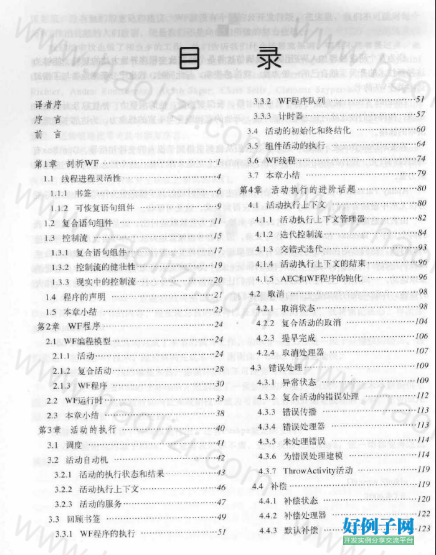 目 录
译者序
序 言
前 言
第1章 剖析WF 1
1.1 线程进程灵活性 4
1.1.1 书签 6
1.1.2 可恢复语句组件 9
1.2 复合语句组件 11
1.3 控制流 15
1.3.1 复合语句组件 17
1.3.2 控制流的健壮性 19
1.3.3 现实中的控制流 20
1.4 程序的声明 21
1.5 本章小结 23
第2章 WF程序 24
2.1 WF编程模型 24
2.1.1 活动 24
2.1.2 复合活动 28
2.1.3 WF程序 30
2.2 WF运行时 33
2.3 本章小结 38
第3章 活动的执行 40
3.1 调度 41
3.2 活动自动机 42
3.2.1 活动的执行状态和结果 43
3.2.2 活动执行上下文 46
3.2.3 活动的服务 47
3.3 回顾书签 49
3.3.1 WF程序的执行 51
3.3.2 WF程序队列 51
3.3.3 计时器 57
3.4 活动的初始化和终结化 60
3.5 组件活动的执行 64
3.6 WF线程 74
3.7 本章小结 79
第4章 活动执行的进阶话题 80
4.1 活动执行上下文 80
4.1.1 活动执行上下文管理器 82
4.1.2 迭代控制流 84
4.1.3 交错式迭代 93
4.1.4 活动执行上下文的结束 96
4.1.5 AEC和WF程序的钝化 96
4.2 取消 98
4.2.1 取消状态 98
4.2.2 复合活动的取消 104
4.2.3 提早完成 106
4.2.4 取消处理器 107
4.3 错误处理 109
4.3.1 异常状态 109
4.3.2 复合活动的错误处理 112
4.3.3 错误传播 113
4.3.4 错误处理器 113
4.3.5 未处理错误 114
4.3.6 为错误处理建模 114
4.3.7 ThrowActivity活动 119
4.4 补偿 119
4.4.1 补偿状态 120
4.4.2 补偿处理器 122
4.4.3 默认补偿 123
www.haolizi.com
好例子网
开发实例分享交流平台